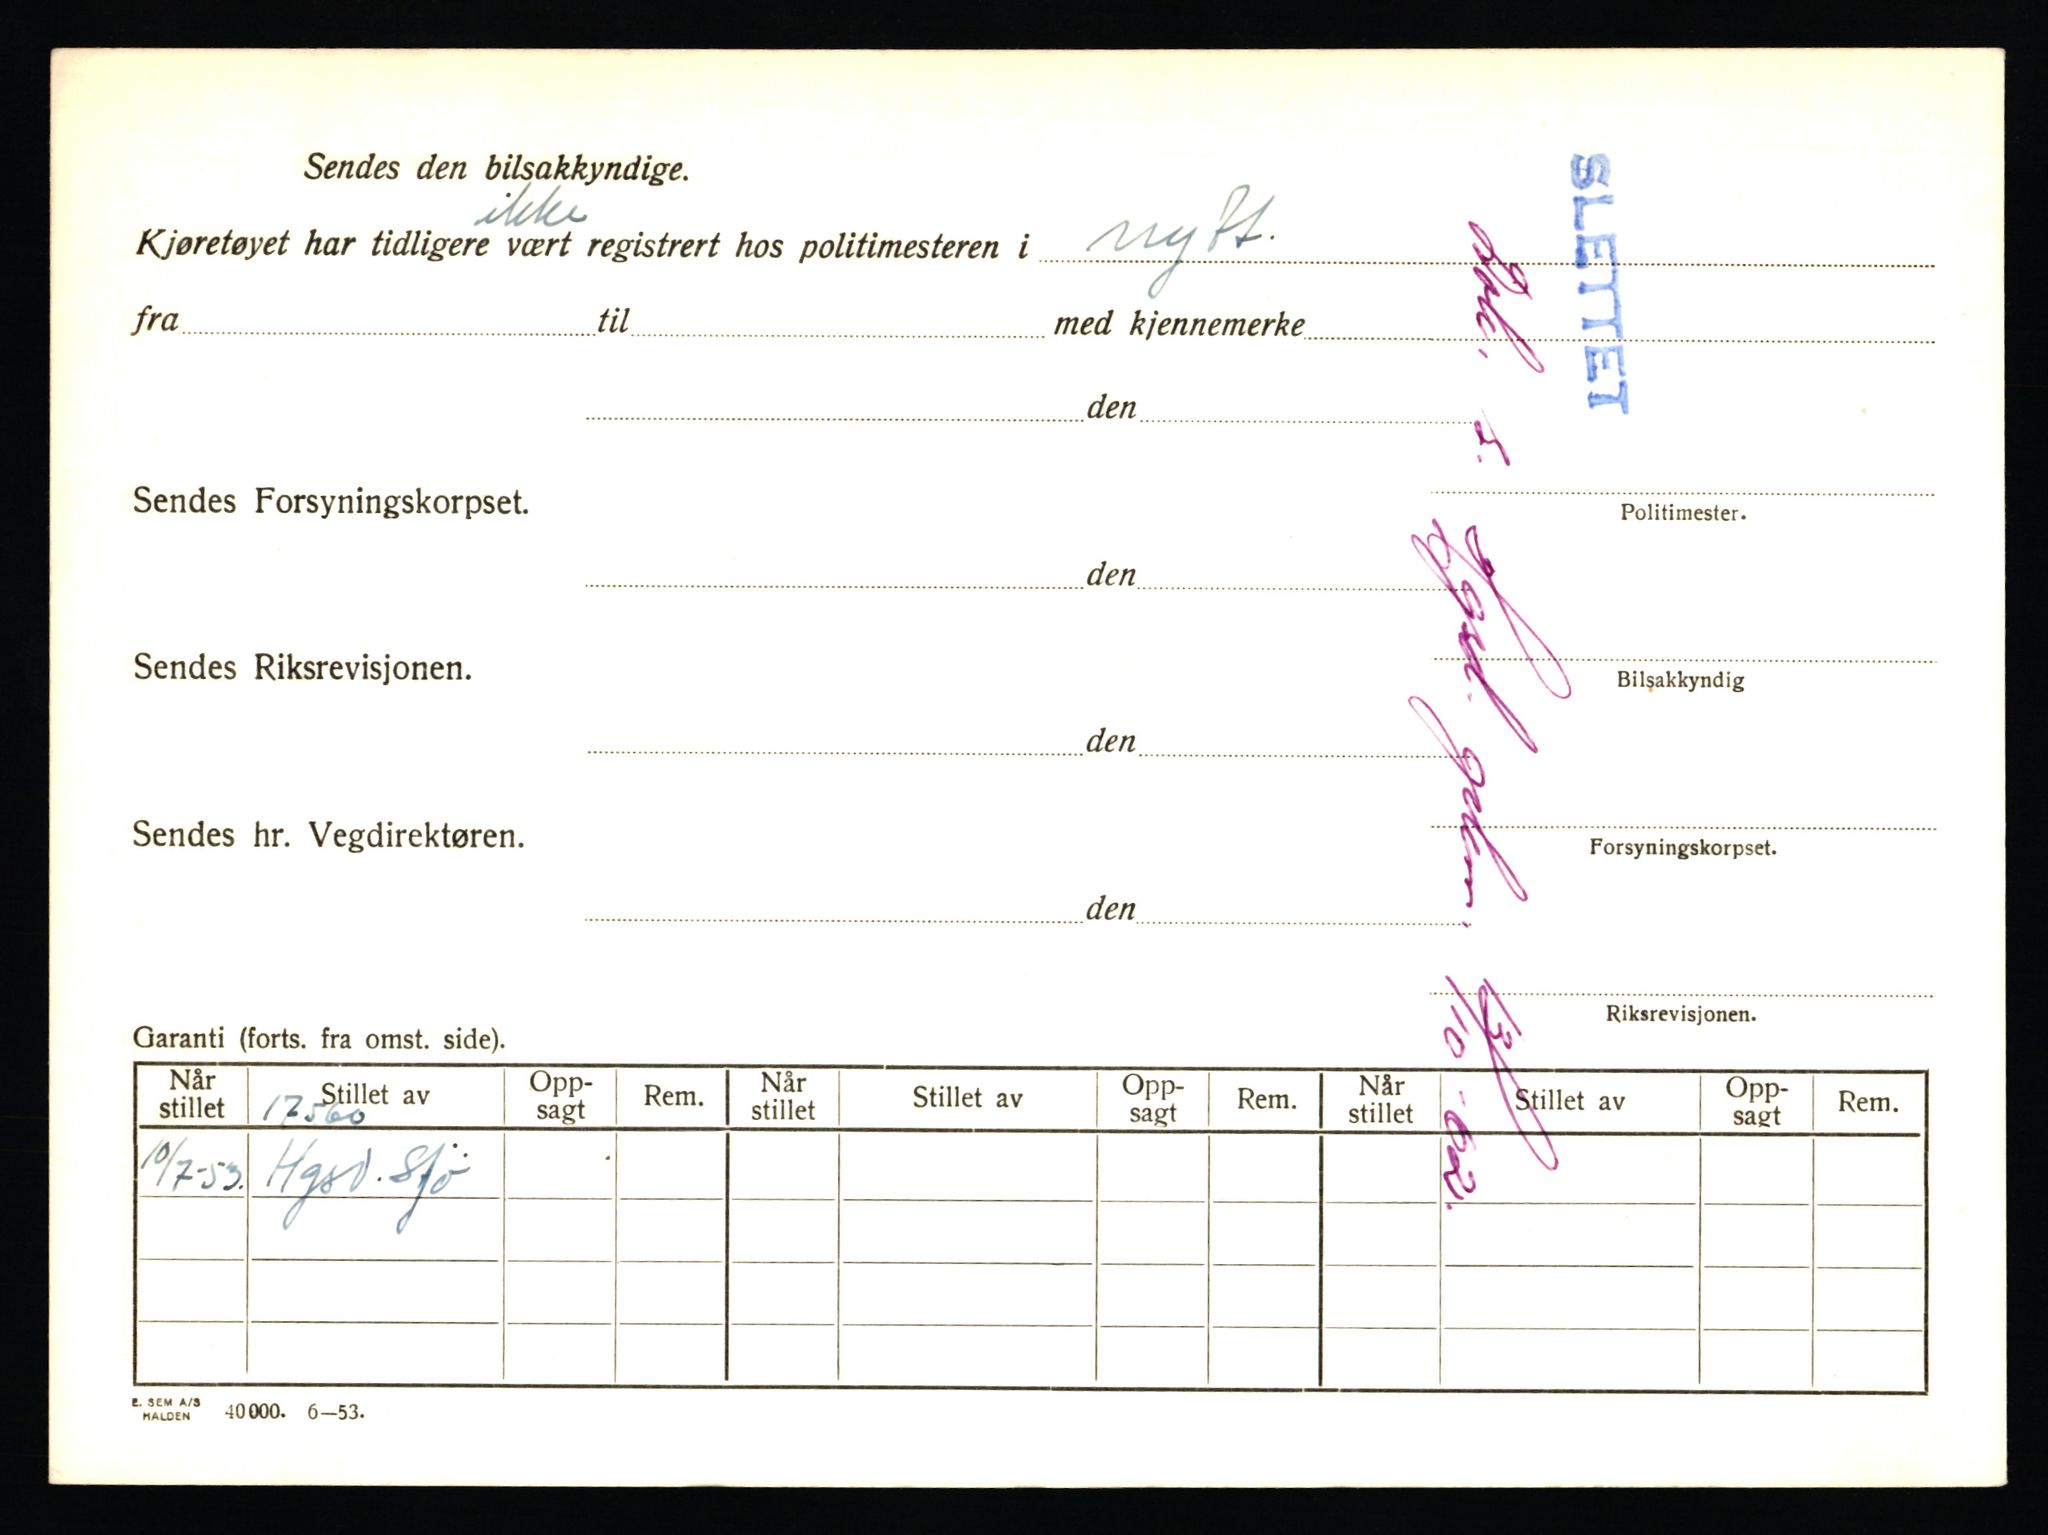 Sendes den bilsakkyndige.
ikke
Kjøretøyet har tidligere vært registrert hos politimesteren i nytt.
fra til med kjennemerke
den
SLETTET
Politimester.
Sendes Forsyningskorpset.
den
Bilsakkyndig
Sendes Riksrevisjonen.
den
Forsyningskorpset.
Sendes hr. Vegdirektøren.
den
Riksrevisjonen.
13/10-62.
Garanti (forts. fra omst. side).
Når stillet Stillet av Opp-sagt Rem. Når stillet Stillet av Opp-sagt Rem. Når stillet Stillet av Opp-sagt Rem.
17560
10/7-53. Hgsd. Sjö
E. SEM A/S
HALDEN 40000. 6—53.